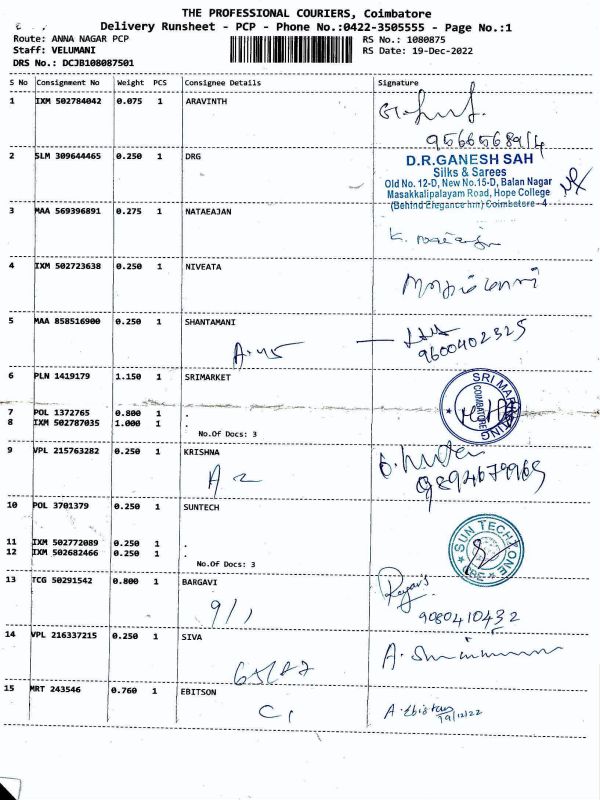 THE PROFESSIONAL COURIERS, Coimbatore
Delivery Runsheet - PCP - Phone No.:0422-3505555 - Page No.:1
Route: ANNA NAGAR PCP RS No.: 1080875
Staff: VELUMANI RS Date: 19-Dec-2022
DRS No.: DCJB108087501
S No Consignment No Weight PCS Consignee Details Signature
1 IXM 502784042 0.075 1 ARAVINTH
2 SLM 309644465 0.250 1 DRG
D.R.GANESH SAH
Silks & Sarees
Old No. 12-D, New No.15-D, Balan Nagar
Masakkalipalayam Road, Hope College
(Behind Elegance hm) Coimbatore - 4
3 MAA 569396891 0.275 1 NATAEAJAN
4 IXM 502723638 0.250 1 NIVEATA
5 MAA 858516900 0.250 1 SHANTAMANI
9600402325
6 PLN 1419179 1.150 1 SRIMARKET
SRI MARKETING
COIMBATORE
7 POL 1372765 0.800 1 .
8 IXM 502787035 1.000 1 .
No.Of Docs: 3
9 VPL 215763282 0.250 1 KRISHNA
10 POL 3701379 0.250 1 SUNTECH
SUN TECH ZONE
CBE
11 IXM 502772089 0.250 1 .
12 IXM 502682466 0.250 1 .
No.Of Docs: 3
13 TCG 50291542 0.800 1 BARGAVI
9/1
9080410432
14 VPL 216337215 0.250 1 SIVA
15 MRT 243546 0.760 1 EBITSON
19/12/22